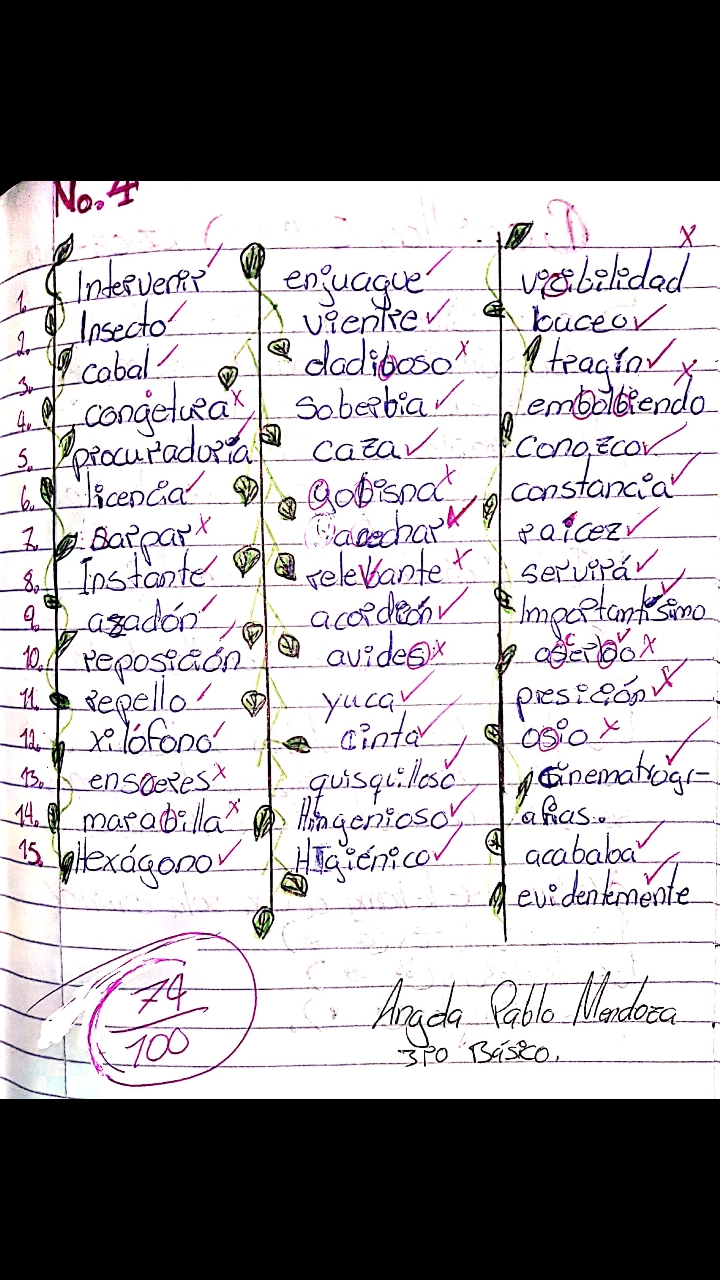 No. 4
1. Intervenir
2. Insecto
3. cabal
4. congetura
5. procuraduría
6. licencia
7. Barpar
8. Instante
9. azadón
10. reposición
11. repello
12. xilófono
13. enseres
14. marabilla
15. Hexágono
enjuague
vientre
dadiboso
Soberbia
caza
gobisna
acechar
relebante
acordeón
avides
yuca
cinta
quisquilloso
Ingenioso
HIgiénico
vicibilidad
buceo
tragín
embolbiendo
Conozco
constancia
raicez
servirá
Importantísimo
aserbo
presición
osio
Cinematrogr-
afias.
acababa
evidentemente
74
100
Angela Pablo Mendoza
3ro Básico.